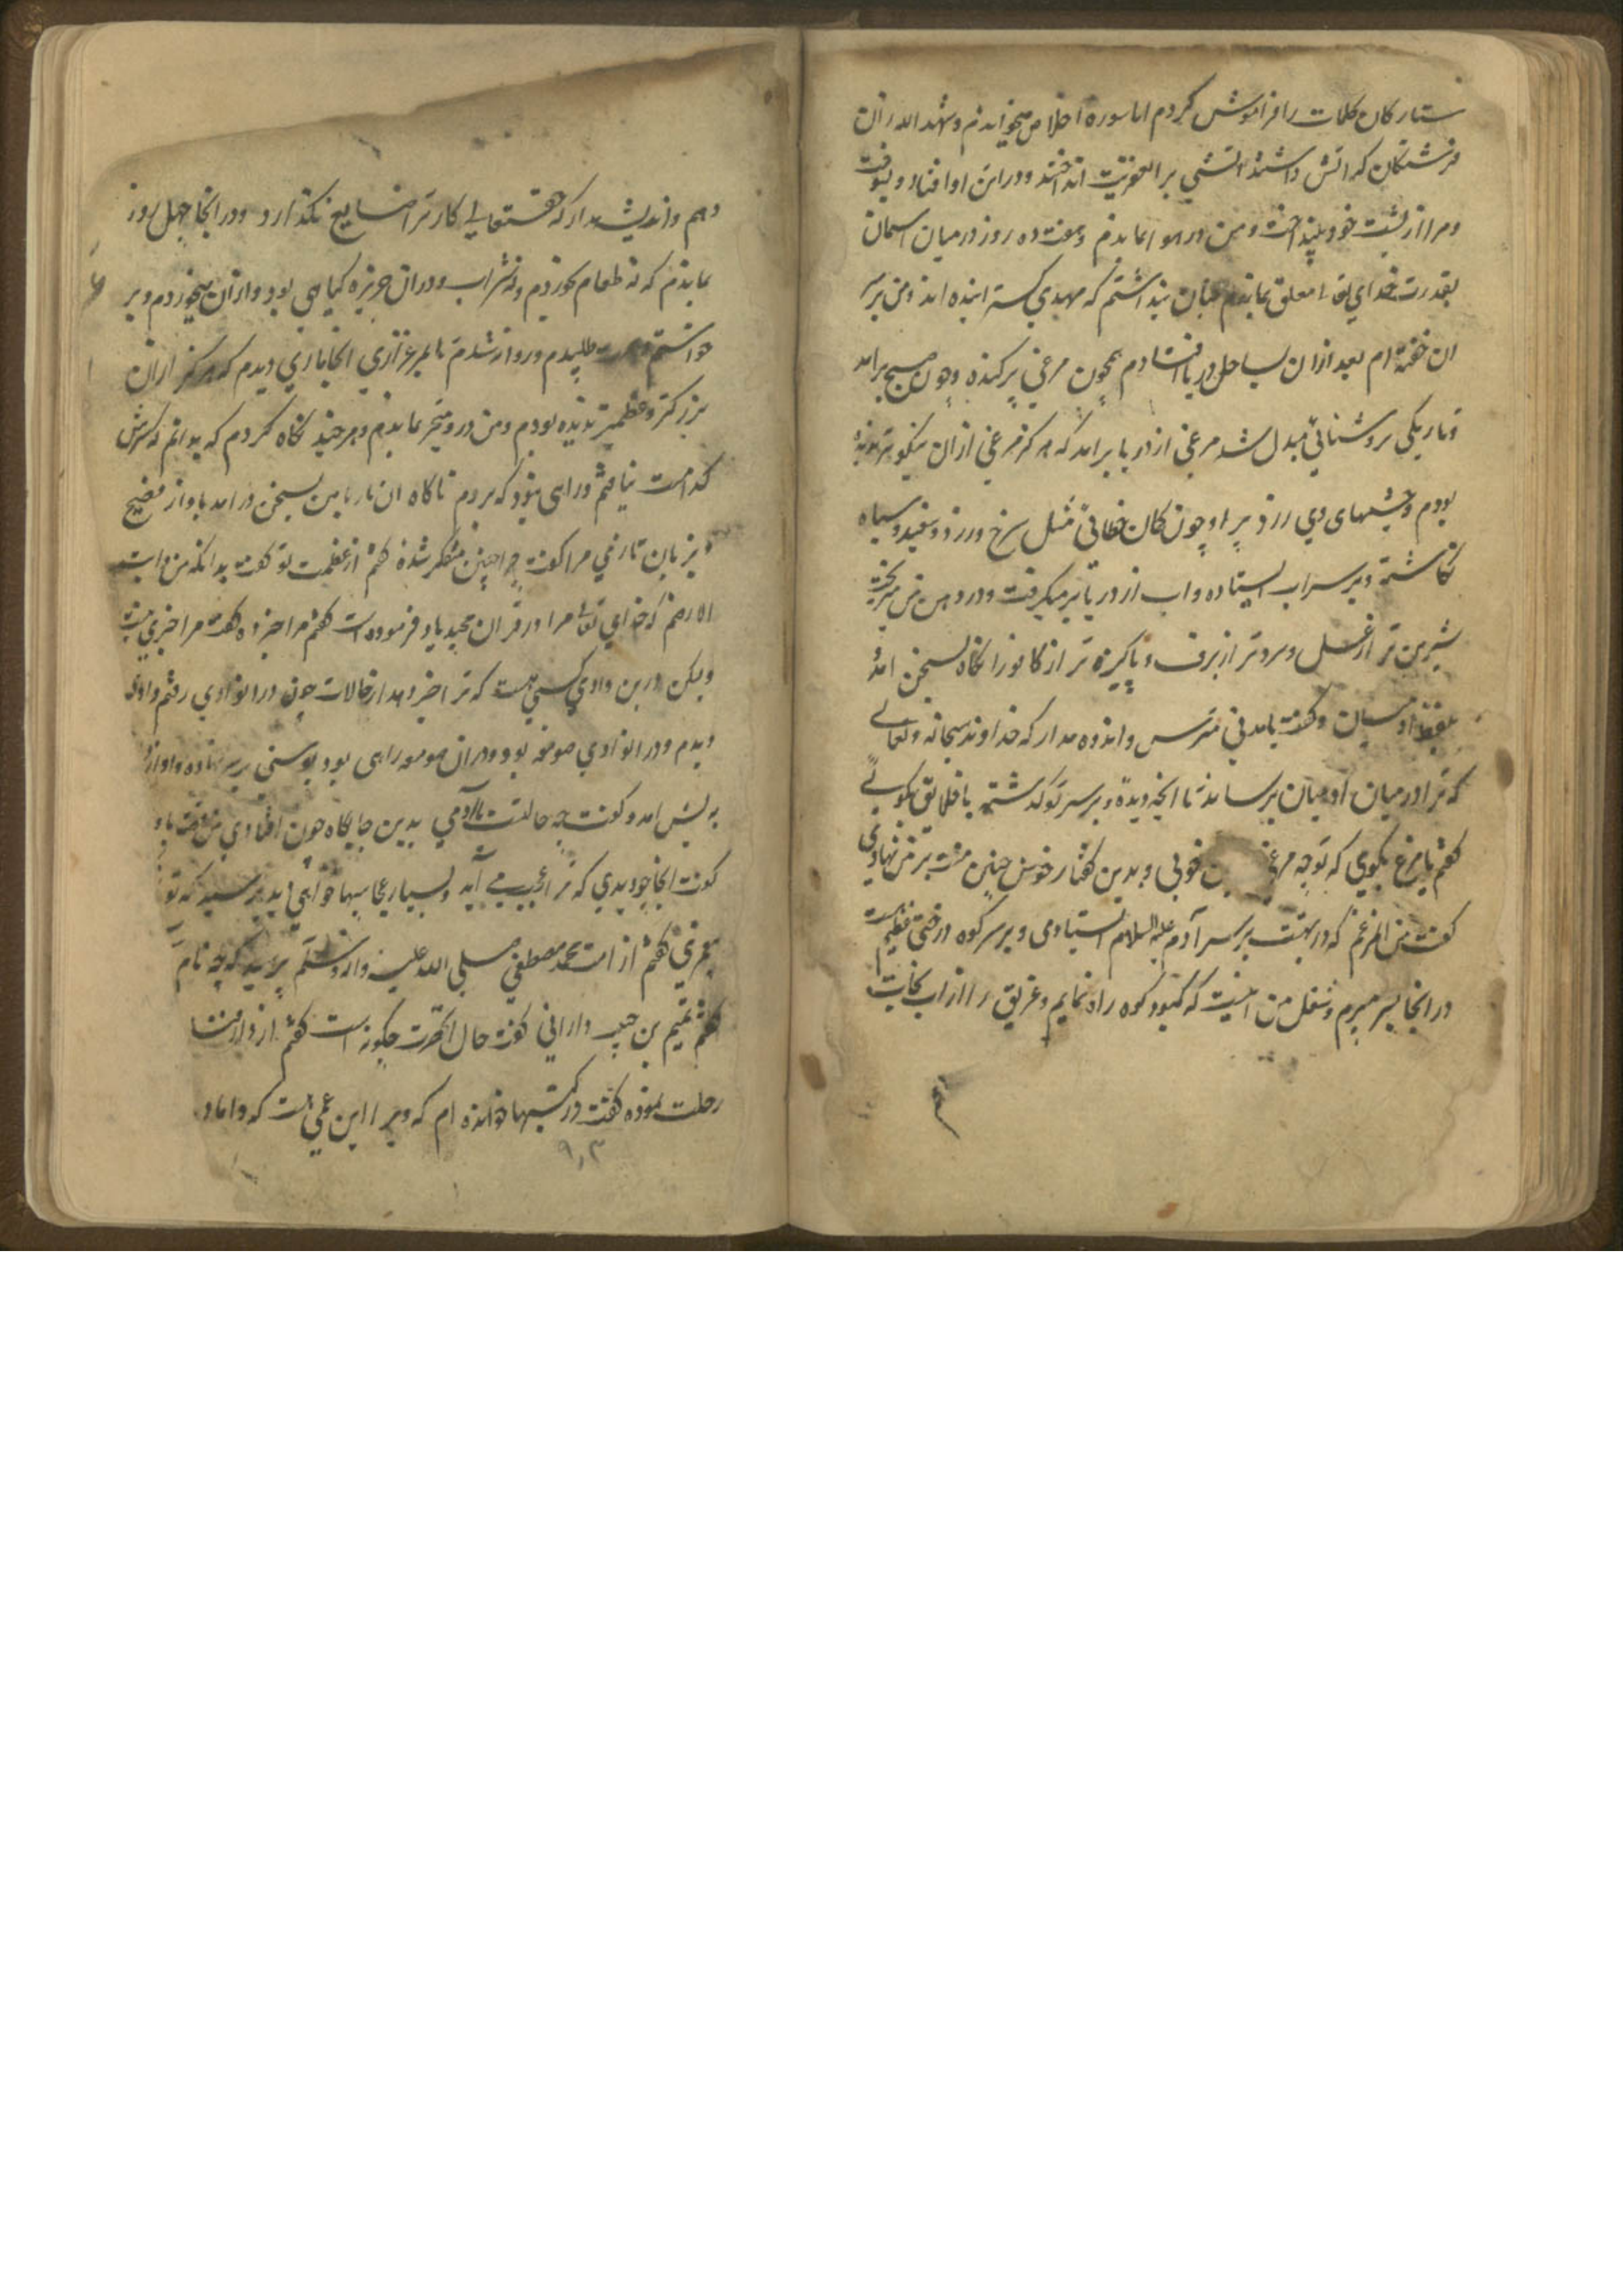 ستارکان کلمات را فراموش کردم اما سوره اخلاص میخواندم و شهد الله ان
فرشتکان که اتش داشتند اتشی بر العفریت انداختند ودر این او افتاد و بسوخت
ومرا از پشت خود بینداخت ومن در هوا بماندم وهفت ده روز در میان اسمان
بقدرت خدای تعا معلق بماندم چنان پنداشتم که مهدی کسترانیده اند ومن بر سر
ان خفته ام بعد ازان بساحل دریا افتادم همچون مرغی پرکنده وچون صبح برامد
وتاریکی بروشنائی مبدل شد مرغی از دریا برامد که هرکز مرغی ازان نیکوتر ندیده
بودم وچشمهای وی زرد پر او چون کمان خطائی مثل سرخ وزرد وسفید وسیاه
نکاشته وبر سر اب ایستاده واب از دریا بر میکرفت ودر دهن من میریخت
شیرین تر از عسل وسردتر از برف و پاکیزه تر از کافور انکاه بسخن امد
وکفت یا مدنی مترس واندوه مدار که خداوند سبحانه وتعالی
که ترا در میان ادمیان برساند تا انچه دیدۀ وبر سر تو کذشته با خلائق بکوئی
کفتم یا مرغ بکوی که تو چه مرغی خوبی وبدین کفتار خوش چنین منت بر من نهادی
کفت من انمرغم که در بهشت بر سر آدم علیه السلام ایستادمی وبر سر کوه درختی عظیم است
در انجا بسر میبرم وشغل من اینست که کمبود کوه راه نمایم وغریق را از اب نجات
دهم واندیشه مدار که حقتعالی کار ترا ضایع نکذارد ودر انجا چهل روز
بماندم که نه طعام خوردم ونه شراب ودران جزیره کیاهی بود وازان میخوردم وبر
خواستم طلبیدم وروانه شدم تا بمرغزاری انجا ماری دیدم که هرکز ازان
بزرکتر وعظیمتر ندیده بودم ومن درو متحیر بماندم وهر چند نکاه کردم که بدانم که سرش
کدامست نیافتم وراهی نبود که بروم ناکاه ان مار با من بسخن درامد باواز فصیح
وبزبان تازی مرا کفت چرا چنین متفکر شدۀ کفتم از عظمت تو کفت بدانکه من دابت
الارضم که خدای تعا مرا در قران مجید یاد فرموده است کفتم مرا خبر ده کفت مرا خبری نیست
ولیکن درین وادی کسی هست که ترا خبر دهد از حالات چون در انوادی رفتم واوازی
دیدم ودر انوادی صومعه بود ودران صومعه راهبی بود پوستی بر سر نهاده واواز
به پیش امد وکفت چه حالتست یا آدمی بدین جایکاه چون افتادی من قصه با او
کفت انجا چه دیدی که ترا عجیب می آید وبسیار عجایبها خواهی دید پرسید که تو
کفتم از امت محمد مصطفی صلی الله علیه واله وسلم پرسید که چه نام
کفتم تمیم بن حبیب دارانی کفت حال انحضرت چکونه است کفتم از دار فنا
رحلت نموده کفت در کتبها خوانده ام که ویرا ابن عمی هست که داماد
۹۰۳